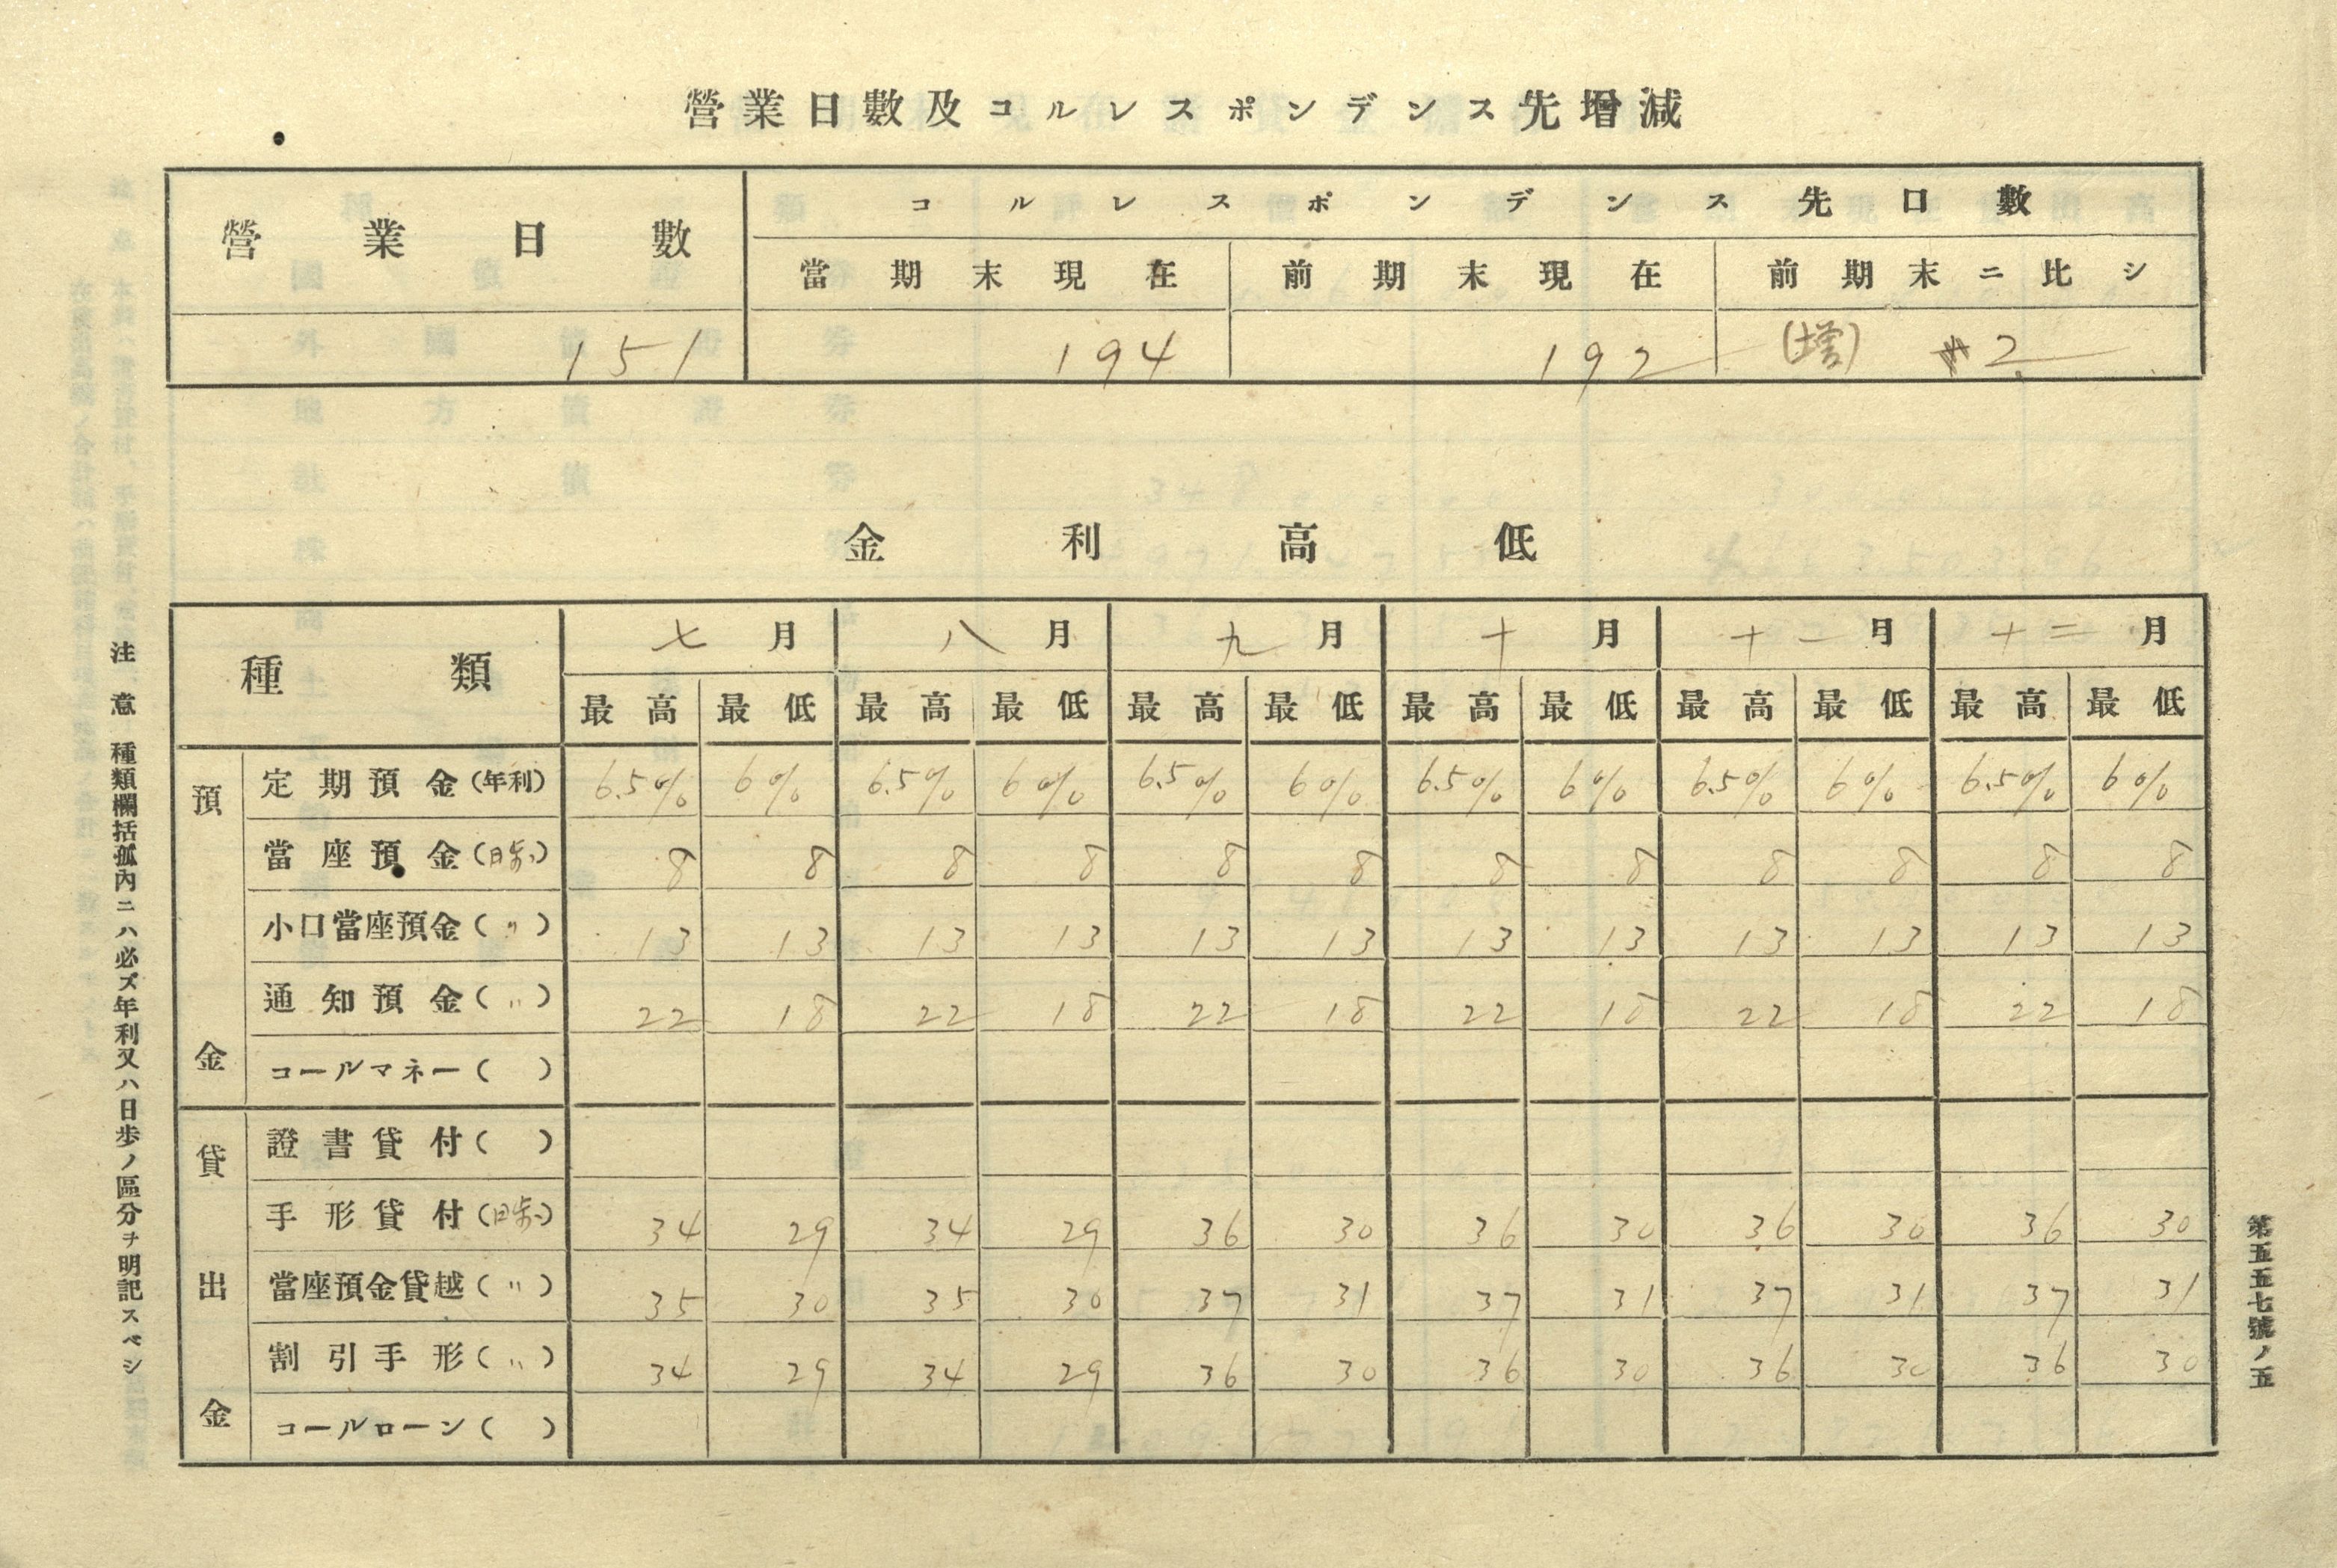 營業日數及コルレスポンデンス先增減
營業日數 コルレスポンデンス先口數
當期末現在 前期末現在 前期末ニ比シ
151 194 192 (增) 2
金利高低
種類 七月 八月 九月 十月 十一月 十二月
最高 最低 最高 最低 最高 最低 最高 最低 最高 最低 最高 最低
預金
定期預金(年利) 6.5% 6% 6.5% 6% 6.5% 6% 6.5% 6% 6.5% 6% 6.5% 6%
當座預金(日歩) 8 8 8 8 8 8 8 8 8 8 8 8
小口當座預金(〃) 13 13 13 13 13 13 13 13 13 13 13 13
通知預金(〃) 22 18 22 18 22 18 22 18 22 18 22 18
コールマネー( )
貸出金
證書貸付( )
手形貸付(日歩) 34 29 34 29 36 30 36 30 36 30 36 30
當座預金貸越(〃) 35 30 35 30 37 31 37 31 37 31 37 31
割引手形(〃) 34 29 34 29 36 30 36 30 36 30 36 30
コールローン( )
注意 種類欄括孤內ニハ必ズ年利又ハ日歩ノ區分ヲ明記スベシ
第五五七號ノ五